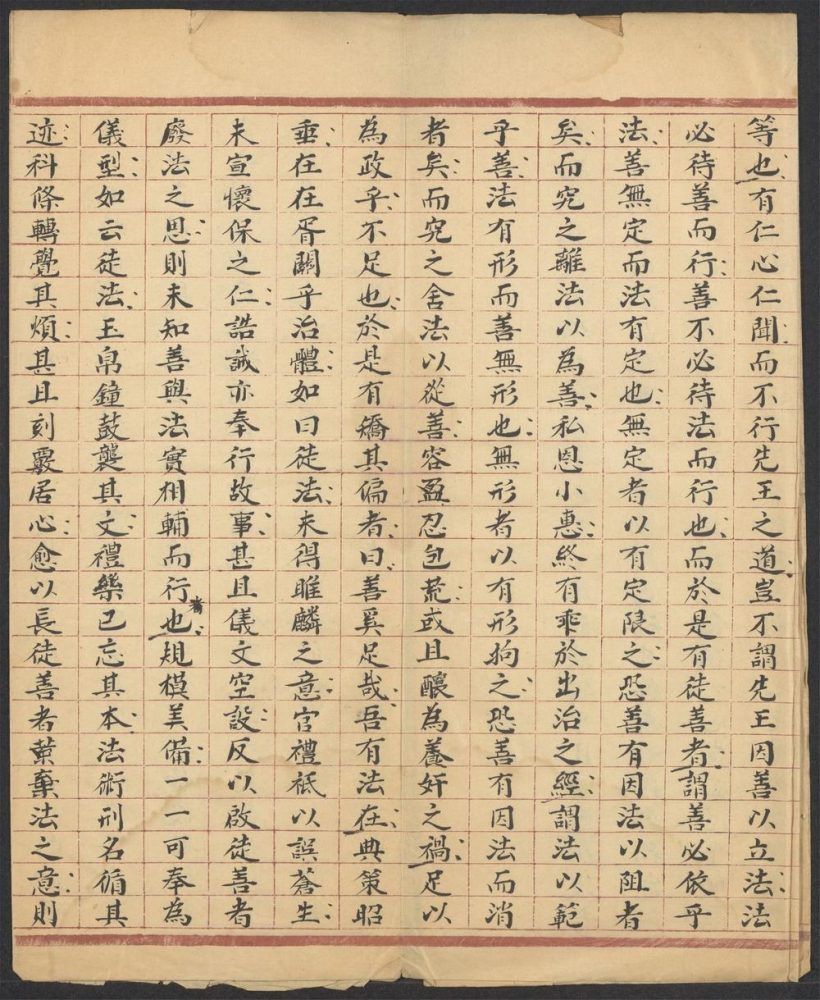 等也有仁心仁聞而不行先王之道豈不謂先王因善以立法法
必待善而行善不必待法而行也而於是有徒善者謂善必依乎
法善無定而法有定也無定者以有定限之恐善有因法以阻者
矣而究之離法以為善私恩小惠終有乖於出治之經謂法以範
乎善法有形而善無形也無形者以有形拘之恐善有因法而消
者矣而究之舍法以從善容盈忍包荒或且釀為養奸之禍足以
為政乎不足也於是有矯其偏者曰善奚足哉吾有法在典策昭
垂在在胥關乎治體如曰徒法未得雎麟之意官禮祇以誤蒼生
未宣懷保之仁誥誡亦奉行故事甚且儀文空設反以啟徒善者
廢法之思則未知善與法實相輔而行也規模美備一一可奉為
儀型如云徒法玉帛鐘鼓襲其文禮樂已忘其本法術刑名循其
迹科條轉覺其煩其且刻覈居心愈以長徒善者棄法之意則